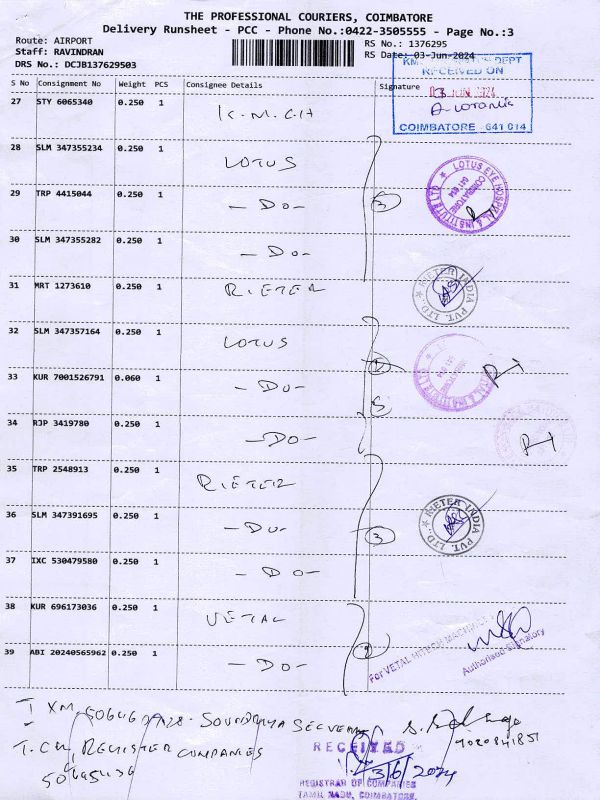 THE PROFESSIONAL COURIERS, COIMBATORE
Delivery Runsheet - PCC - Phone No.:0422-3505555 - Page No.:3
Route: AIRPORT
Staff: RAVINDRAN
DRS No.: DCJB137629503
RS No.: 1376295
RS Date: 03-Jun-2024
S No Consignment No Weight PCS Consignee Details Signature
DEPT
RECEIVED ON
COIMBATORE 641 014
27 STY 6065340 0.250 1 K.M.C.H
28 SLM 347355234 0.250 1 LOTUS
29 TRP 4415044 0.250 1 - DO - 3
LOTUS EYE HOSPITAL & INSTITUTE LTD
COIMBATORE
30 SLM 347355282 0.250 1 - DO -
31 MRT 1273610 0.250 1 RIETER
RIETER INDIA PVT. LTD.
32 SLM 347357164 0.250 1 LOTUS
33 KUR 7001526791 0.060 1 - DO -
34 RJP 3419780 0.250 1 - DO -
35 TRP 2548913 0.250 1 RIETER
36 SLM 347391695 0.250 1 - DO - 3
RIETER INDIA PVT. LTD.
37 IXC 530479580 0.250 1 - DO -
38 KUR 696173036 0.250 1 VETAL
39 ABI 20240565962 0.250 1 - DO - 2
For VETAL
Authorised Signatory
COMPANIES
RECEIVED
3/6/2024
REGISTRAR OF COMPANIES
TAMIL NADU, COIMBATORE.